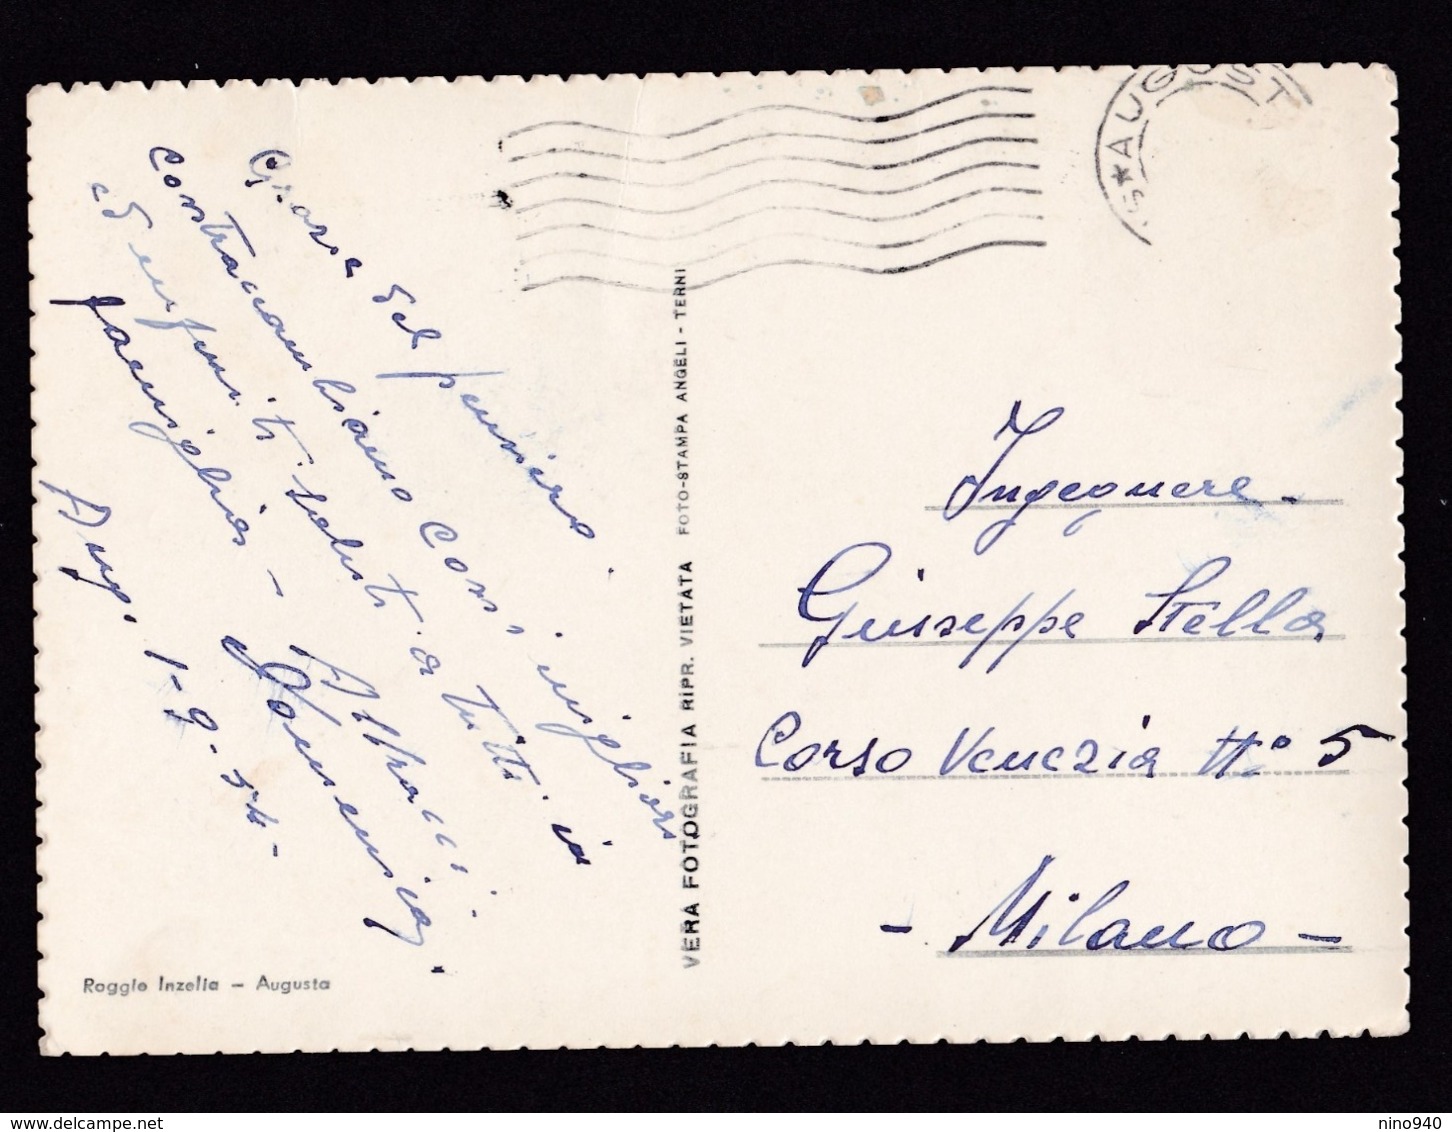 Grazie del pensiero.
contraccambiamo con i migliori
ed infiniti saluti a tutti in
famiglia -
Aug. 1-9-54-
AUGUST
Ingegnere -
Giuseppe Stella
Corso Venezia N° 5
- Milano -
VERA FOTOGRAFIA RIPR. VIETATA FOTO-STAMPA ANGELI - TERNI
Roggio Inzolia - Augusta
delcampe.net
nino940